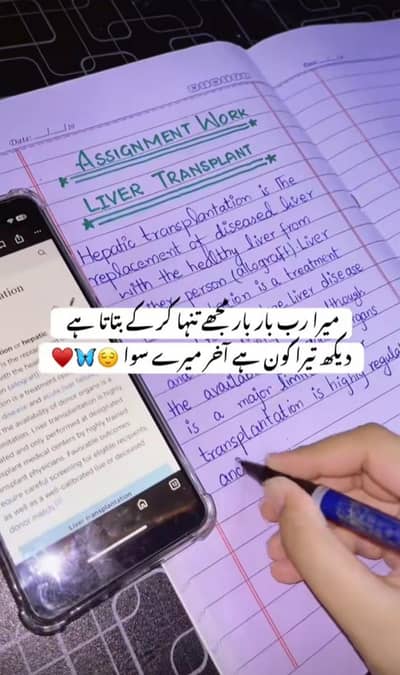 Date: __/__/20
ASSIGNMENT WORK
LIVER TRANSPLANT
Hepatic transplantation is the
replacement of diseased liver
with the healthy liver from
person (allograft) Liver
is a treatment
liver disease
and although
the organs
is a major
transplantation is highly
and
میرا رب بار بار مجھے تنہا کر کے بتاتا ہے
دیکھ تیرا کون ہے آخر میرے سوا 😌🦋♥️
or hepatic
is the
is a treatment
disease and acute liver
the availability of donor organs is a
limitation. Liver transplantation is highly
and only performed at designated
transplant medical centers by highly trained
transplant physicians. Favorable outcomes
require careful screening for eligible recipients
as well as a well-calibrated live or deceased
donor match.
Liver transplantation